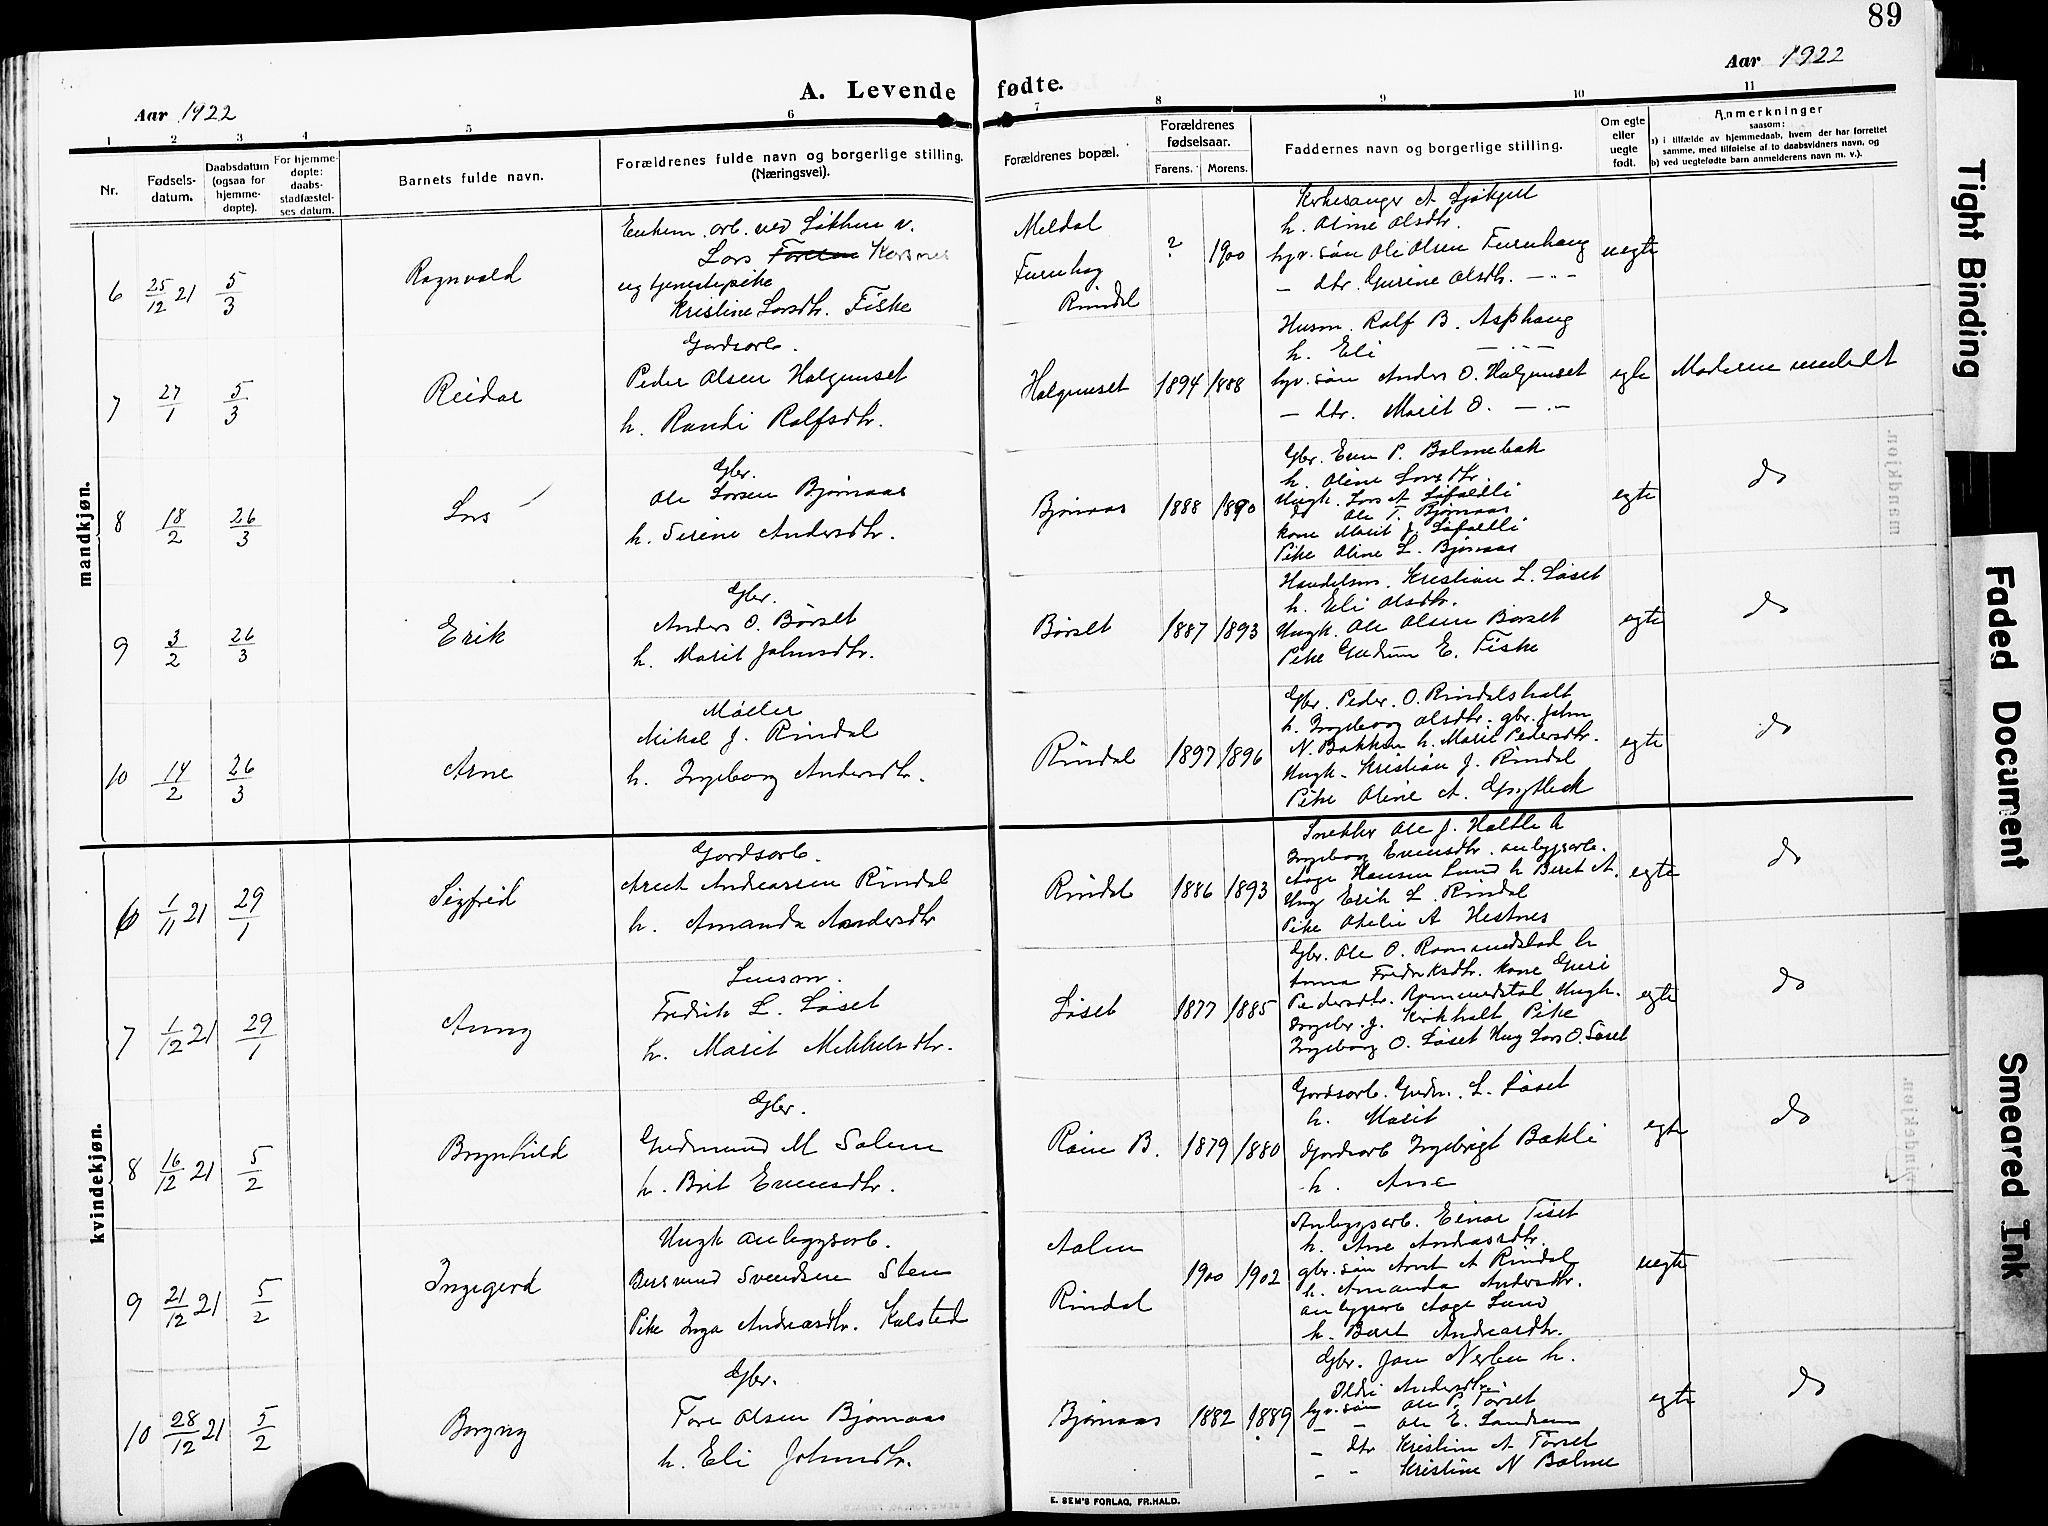 89
Aar 1922
Aar 1922
A. Levende fødte.
1 2 3 4 5 6 7 8 9 10 11
Nr.
Fødsels-
datum.
Daabsdatum
(ogsaa for
hjemme-
døpte).
For hjemme-
døpte:
daabs-
stadfæstel-
ses datum.
Barnets fulde navn.
Forældrenes fulde navn og borgerlige stilling.
(Næringsvei).
Forældrenes bopæl.
Forældrenes
fødselsaar.
Farens. Morens.
Faddernes navn og borgerlige stilling.
Om egte
eller
uegte
født.
Anmerkninger
saasom:
a) i tilfælde av hjemmedaab, hvem der har forrettet
samme, med tilføielse af to daabsvidners navn, og
b) ved uegtefødte barn anmelderens navn m. v.).
mandkjøn.
6
25/12 21
5/3
Ragnvald
Lars
og tjenestepike
Kristine Larsdtr. Fiske
Meldal
Furuhog
Rindal
?
1900
Kirkesanger A
h. Oline Olsdtr.
hjv. søn Ole Olsen Furuhaug
— dtr. Gurine Olsdtr. — " —
uegte
7
27/1
5/3
Reidar
Gardsarb.
Peder Olsen Halgunset
h. Randi Ralfsdtr.
Halgunset
1894
1888
Husm. Ralf B. Asphaug
h. Eli — " —
hjv. søn Anders O. Halgunset
— dtr. Marit O. — " —
egte
Moderen medalt
8
18/2
26/3
Lars
Gbr.
Ole Larsen Bjørnaas
h. Serine Andersdtr.
Bjørnaas
1888
1890
Gbr. Even P. Bolmebak
h. Oline Larsdtr.
Ungk. Lars A Løfaldli
do Ole T. Bjørnaas
kone Marit J. Løfaldli
Pike Oline L. Bjørnaas
egte
do
9
3/2
26/3
Erik
Gbr.
Anders O. Børset
h. Marit Johnsdtr.
Børset
1887
1893
Handelsm. Kristian L. Løset
h. Eli Olsdtr.
Ungk. Ole Olsen Børset
Pike Gudrun E. Fiske
egte
do
10
14/2
26/3
Arne
Møller
Mikal J. Rindal
h. Ingeborg Andersdtr.
Rindal
1897
1896
Gbr. Peder O. Rindalsholt
h. Ingeborg Olsdtr. gbr. John
N. Bakken h. Marit Pedersdtr.
Ungk. Kristian J. Rindal
Pike Oline A.
egte
do
kvindekjøn.
6
1/11 21
29/1
Sigfrid
Gardsarb.
Arnt Andreassen Rindal
h. Amanda Andersdtr
Rindal
1886
1893
Snekker Ole J. Holtle h
Ingeborg Evensdtr. anlegsarb.
Aage Hansen Lund h Beret A.
Ung Erik L. Rindal
Pike Otelie A Hestnes
egte
do
7
1/12 21
29/1
Anny
Lensm.
Fredrik L. Løset
h. Marit Mikkelsdtr.
Løset
1877
1885
Gbr. Ole O. Romundstad h
Anna Fredriksdtr. kone Guri
Pedersdtr. Romundstad. Ungk.
Ingebr. J. Kirkholt Pike
Ingeborg O. Løset Ung Lars O. Løset
egte
do
8
16/12 21
5/2
Brynhild
Gbr.
Gudmund M Solem
h. Brit Evensdtr.
Røen B.
1879
1880
Gardsarb. Gudm. L. Løset
h. Marit
Gardsarb Ingebrigt Bakli
h. Ane
egte
do
9
21/12 21
5/2
Ingegerd
Ungk anlegsarb.
Bersvend Svendsen Sten
Pike Inga Andreasdtr. Kalstad
Aalen
Rindal
1900
1902
Anlegsarb. Einar Tiset
h. Ane Andreasdtr.
gbr. søn Arnt A Rindal
h. Amanda Andersdtr.
anlegsarb Aage Lund
h. Beret Andreasdtr.
uegte
10
28/12 21
5/2
Borgny
Gbr.
Tore Olsen Bjørnaas
h. Eli Johnsdtr.
Bjørnaas
1882
1889
Gbr. Jon Nerbu h.
Oldri Andersdtr.
hjv. søn Ole P. Torset
— " — Ole E. Landsem
— dtr Kristine A Torset
— " — Kristine N Bolme
egte
do
E. SEM'S FORLAG, FR.HALD.
Tight Binding
Faded Document
Smeared Ink